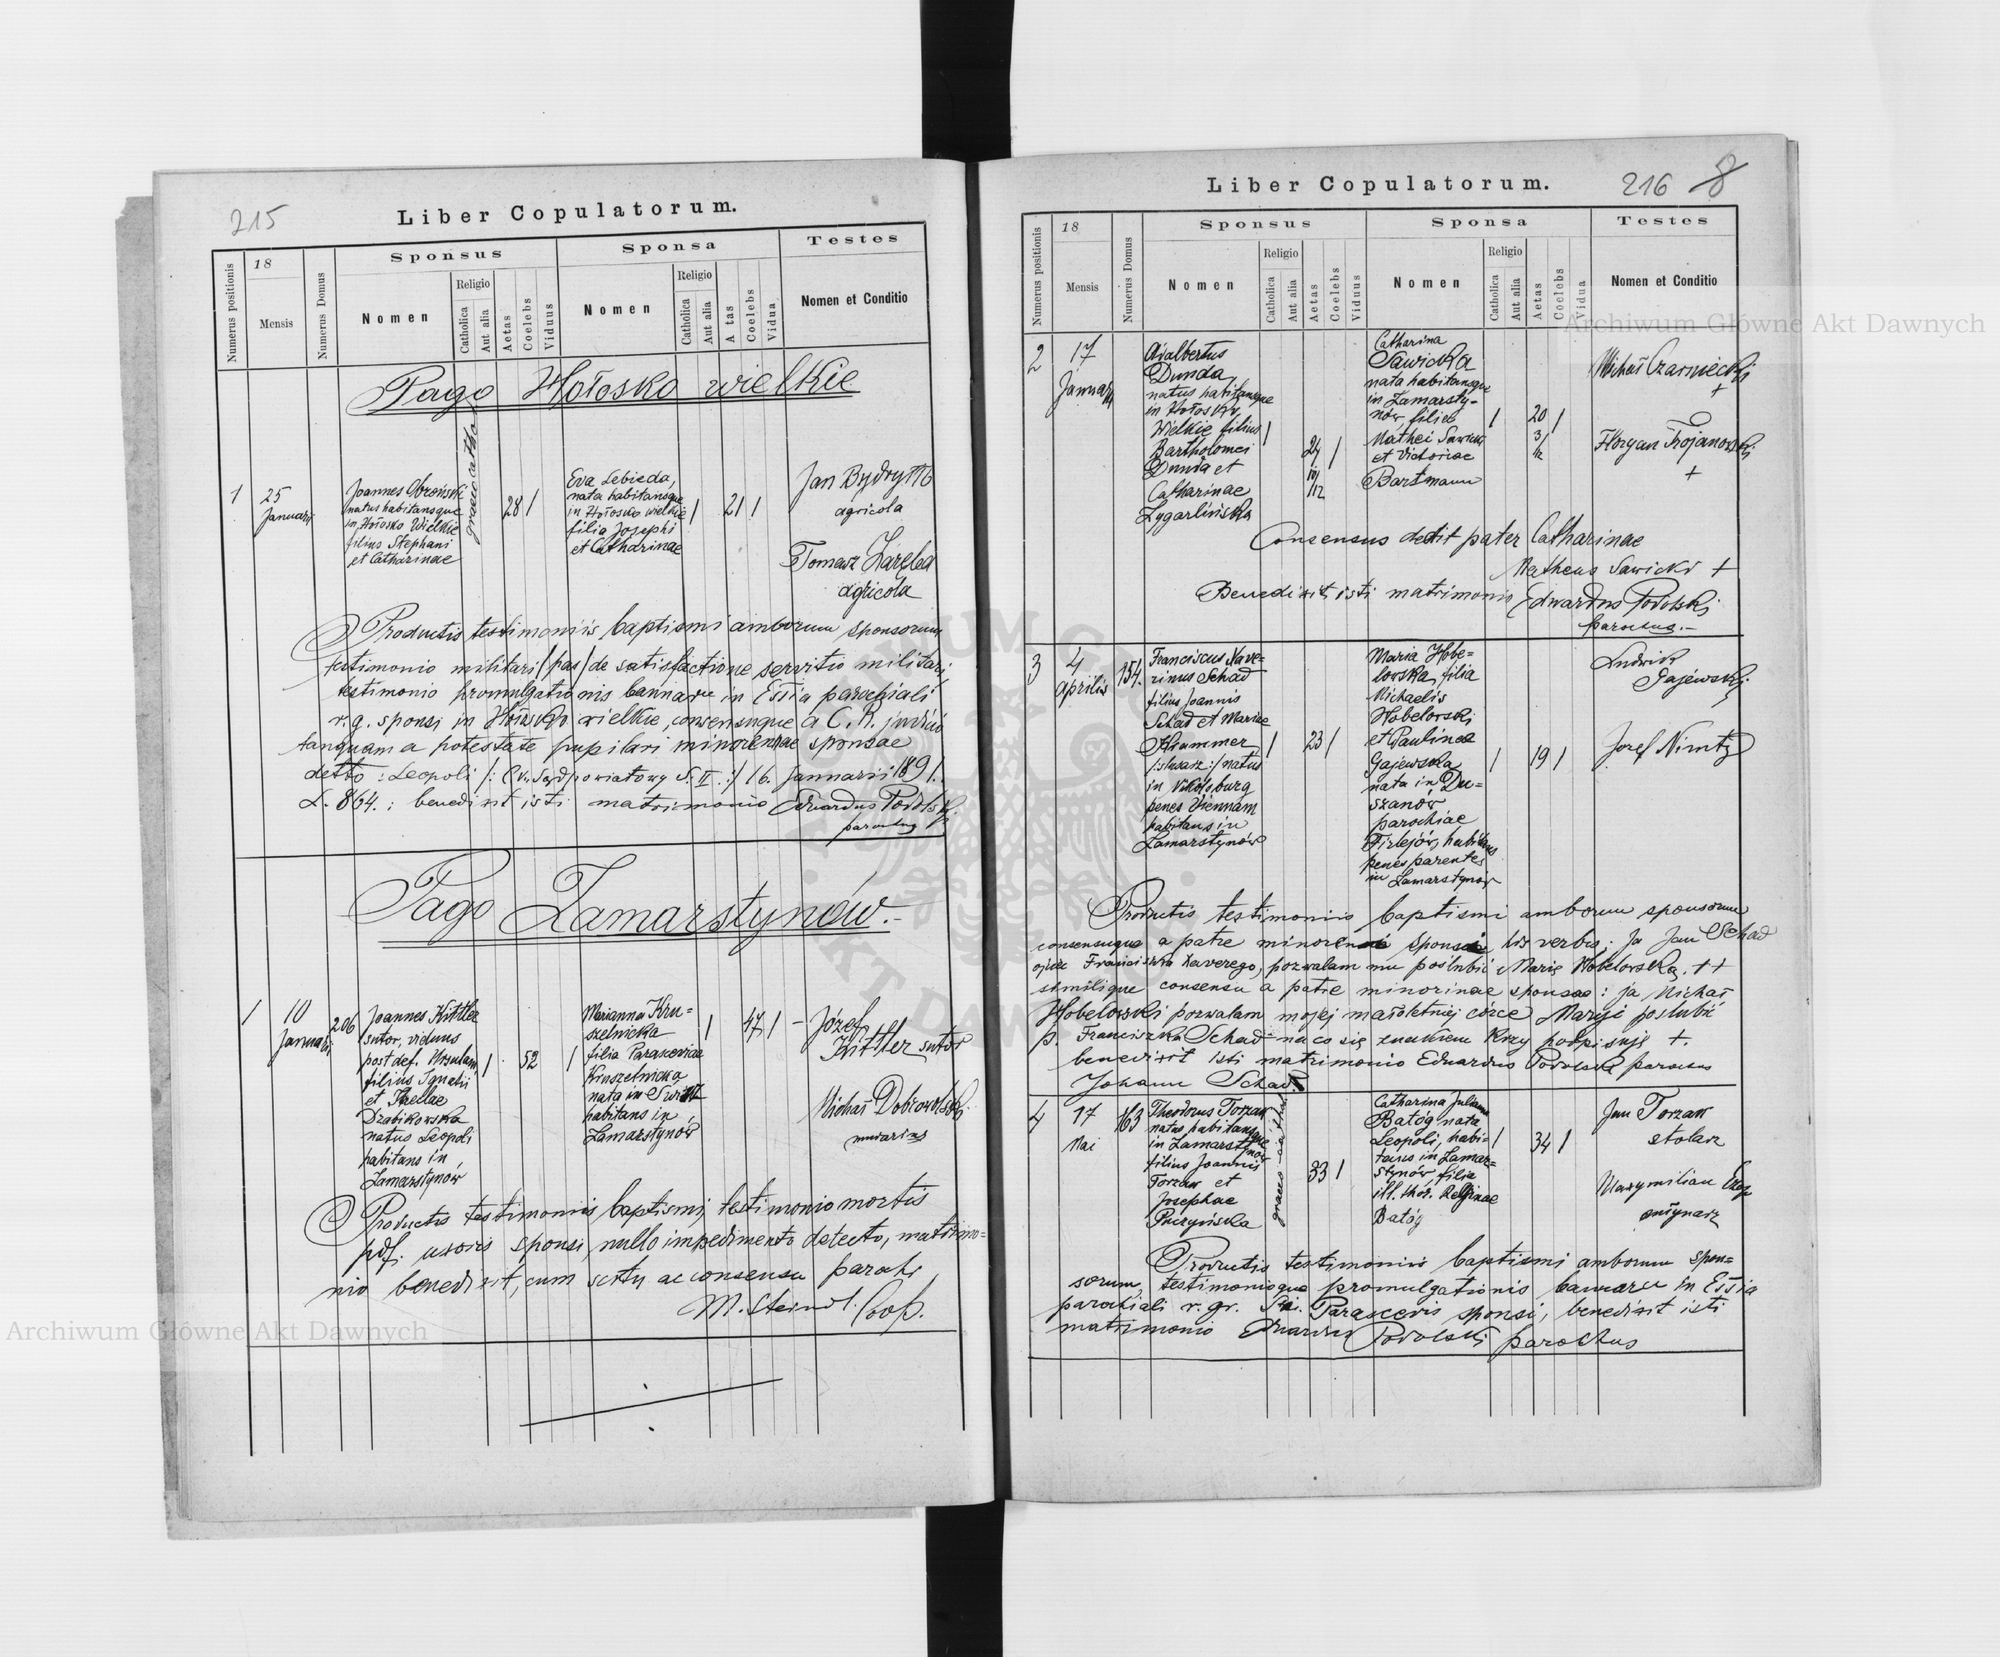 215
Liber Copulatorum.
Numerus positionis
18
Mensis
Numerus Domus
Sponsus
Nomen
Religio
Catholica
Aut alia
Aetas
Coelebs
Viduus
Sponsa
Nomen
Religio
Catholica
Aut alia
A tas
Coelebs
Vidua
Testes
Nomen et Conditio
Pago Hołosko wielkie
1
25
Januarii
Joannes
natus habitansque
in Hołosko Wielkie
filius Stephani
et Catharinae
28 /
Eva Lebieda,
nata habitansque
in Hołosko wielkie
filia Josephi
et Catharinae
/
21 /
Jan
agricola
Tomasz Zaręba
agricola
Productis testimoniis baptismi amborum sponsorum
testimonio militari /pas/ de satisfactione servitio militari,
testimonio promulgationis bannorum in Eccia parochiali
r. g. sponsi in Hołosko wielkie, consensuque a C. R. judicio
tanquam a potestate pupilari minorennae sponsae
detto: Leopoli /: powiatowy S. II :/ 16. Januarii 1891.
L. 864.: benedixit isti matrimonio Eduardus Podolski
parochus
Pago Zamarstynów.
1
10
Januarii
206
Joannes Kittler
sutor, viduus
post def. Ursulam
filius Ignatii
et
Drabikowska
natus Leopoli
habitans in
Zamarstynów
/
52
/
Marianna Kru=
szelnicka
filia Parascevia
Kruszelnicka
nata in
habitans in
Zamarstynów
/
47 / –
Józef
Kittler sutor
Michał Dobrowolski
murarius
Productis testimoniis baptismi, testimonio mortis
pdf. uxoris sponsi, nullo impedimento detecto, matrimo=
nio benedixit, cum scitu ac consensu parochi
M. Steindl. Coop.
216 8
Liber Copulatorum.
Numerus positionis
18
Mensis
Numerus Domus
Sponsus
Nomen
Religio
Catholica
Aut alia
Aetas
Coelebs
Viduus
Sponsa
Nomen
Religio
Catholica
Aut alia
Aetas
Coelebs
Vidua
Testes
Nomen et Conditio
2
17
Januarii
Adalbertus
Dunda,
natus habitansque
in Hołosko
Wielkie filius
Bartholomei
Dunda et
Catharinae
/
24
/
Catharina
Sawicka
nata habitansque
in Zamarsty-
nów, filia
Mathei Sawicki
et Victoriae
Bartmann
/
20 /
3/12
Michał Czarniecki
+
Floryan Trojanowski
+
Consensus dedit pater Catharinae
Matheus Sawicki +
Benedixit isti matrimonio Edwardus Podolski
parochus.-
3
4
Aprilis
154.
Franciscus Xave=
rius Schad
filius Joannis
Schad et Mariae
Krammer
/:ślusarz:/ natus
in Nikolsburg
penes Viennam
habitans in
Zamarstynów
/
23 /
Maria Hobe=
lovska, filia
Michaelis
Hobelovski
et Paulinae
Gajewska
nata in Du=
szanów
parochiae
Firlejów, habitans
penes parentes
in Zamarstynów
/
19 /
Ludwik
Gajewski
Josef Nimtz
Productis testimoniis baptismi amborum sponsorum
consensuque a patre minorennis sponsi his verbis: Ja Jan Schad
ojciec Franciszka Xawerego, pozwalam mu poślubić Marię Hobelovską. ++
similique consensu a patre minorinae sponsae: ja Michał
Hobelowski pozwalam mojej małoletniej córce Maryi poslubić
p. Franciszka Schad na co się znakiem krzy podpisuję +.
benedixit isti matrimonio Eduardus Podolski parochus
Johann Schad
4
17
Mai
163
Theodorus Torzan
natus habitansque
in Zamarstynów
filius Joannis
Torzan et
Josephae
33 /
Catharina Juliana
Batóg nata
Leopoli, habi=
tans in Zamar=
stynów, filia
ill. thor. Reginae
Batóg
/
34 /
Jan Torzan
stolarz
Maxymilian
młynarz
Productis testimoniis baptismi amborum spon=
sorum, testimonioque promulgationis bannorum in Eccia
parochiali r. gr. Parascevis sponsi, benedixit isti
matrimonio Eduardus Podolski parochus
Archiwum Główne Akt Dawnych
Archiwum Główne Akt Dawnych